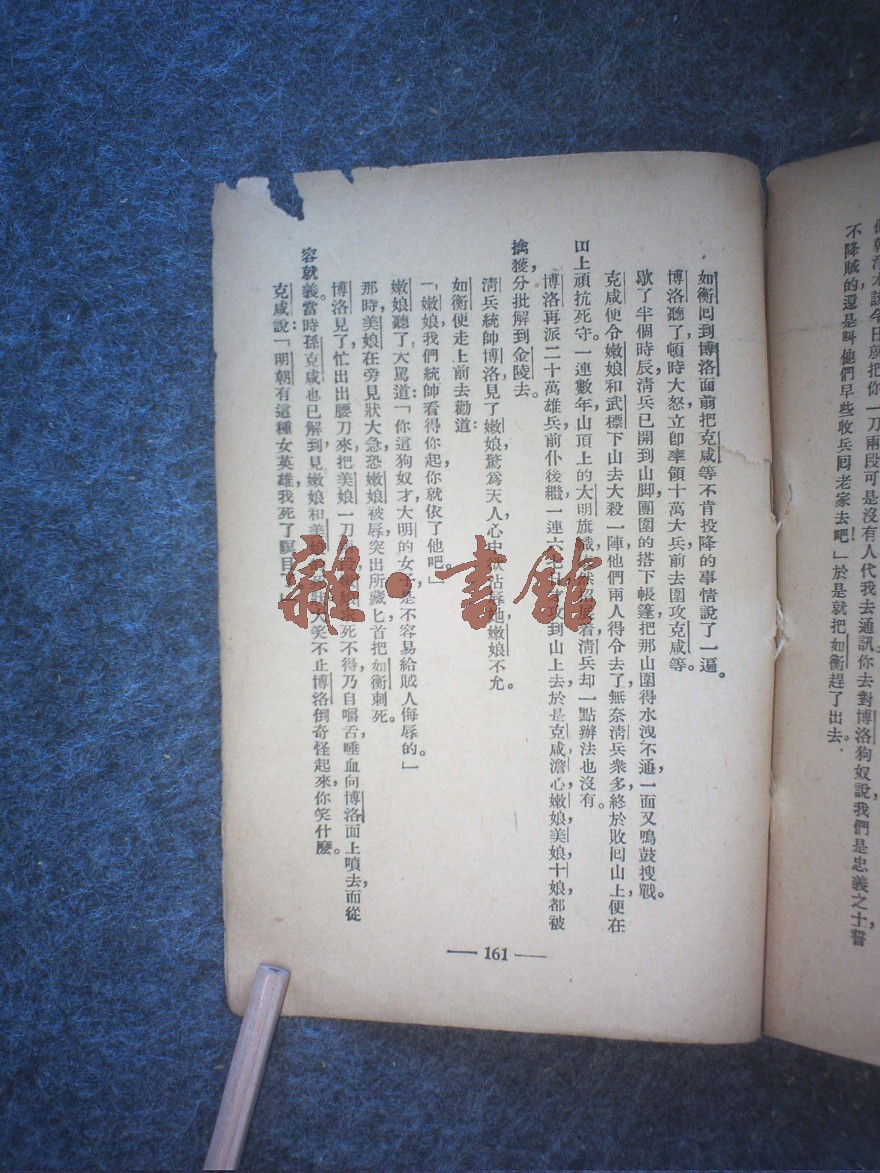 不降賊的還是叫他們早些收兵囘老家去吧！」於是就把如衡趕了出去．
如衡囘到博洛面前把克咸等不肯投降的事情說了一遍。
博洛聽了，頓時大怒立卽率領十萬大兵前去圍攻克咸等。
歇了半個時辰，淸兵已開到山脚，團團的搭下帳篷把那山圍得水洩不通，一面又鳴鼓搜戰。
克咸便令嫩娘和武標下山去大殺一陣他們兩人得令去了，無奈淸兵衆多，終於敗囘山上，便在
田上頑抗死守。一連數年，山頂上的大明旗幟，着，淸兵却一點辦法也沒有。
博洛再派二十萬雄兵，前仆後繼，一連六攻到山上去，於是克咸，澹心，嫩娘，美娘，十娘，都被
擒獲，分批解到金陵去。
淸兵統帥博洛，見了嫩娘驚爲天人，心中嫩娘不允。
如衡便走上前去勸道：
「嫩娘，我們統帥看得你起，你就依了他吧。」
嫩娘聽了，大罵道：「你這狗奴才，大明的女是不容易給賊人侮辱的。」
那時，美娘在旁見狀大急，恐嫩娘被辱，突出所藏匕首把如衡刺死。
博洛見了，忙出出腰刀來，把美娘一刀死不得，乃自嚼舌，唾血向博洛面上噴去，而從
容就義。當時孫克咸也已解到，見嫩娘和美大笑不止，博洛倒奇怪起來，你笑什麽。
克咸說：「明朝有這種女英雄，我死了瞑目了
—— 161 ——
雜·書館